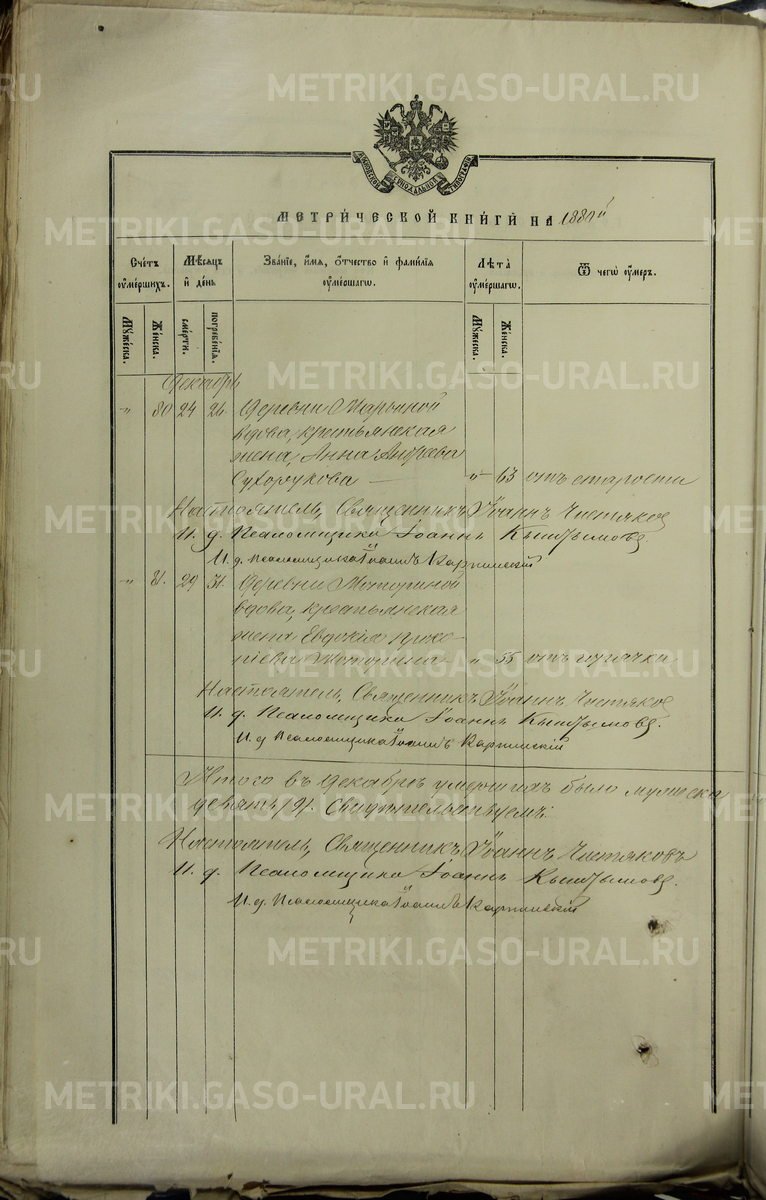 МОСКОВСКОЙ СУНОДАЛЬНОЙ ТИПОГРАФІИ
МЕТРИЧЕСКОЙ КНИГИ НА 188
Счетъ оумершихъ.
Мѣсяцъ и день
Званіе, имя, отчество и фамилія оумершагѡ.
Лѣта оумершагѡ.
Ѿ чегѡ оумеръ.
Мужеска.
Женска.
смерти.
погребенія.
Мужеска.
Женска.
Декабрь
" 80 24 26 Деревни
вдова, крестьянская
жена, Анна Андреева
Сухорукова — " 63 отъ старости
Настоятель, Священникъ Іоаннъ Чистяковъ
И. д. Псаломщика Іоаннъ Кыштымовъ.
И. д. Псаломщика Іоаннъ
" 81. 29 31. Деревни
вдова, крестьянская
жена Евдокія Проко-
піева " 55 отъ
Настоятель, Священникъ Іоаннъ Чистяковъ
И. д. Псаломщика Іоаннъ Кыштымовъ.
И. д. Псаломщика Іоаннъ
Итого въ Декабрѣ умершихъ было мужеска
девять /9/. Свидѣтельствуемъ:
Настоятель, Священникъ Іоаннъ Чистяковъ
И. д. Псаломщика Іоаннъ Кыштымовъ.
И. д. Псаломщика Іоаннъ
METRIKI.GASO-URAL.RU